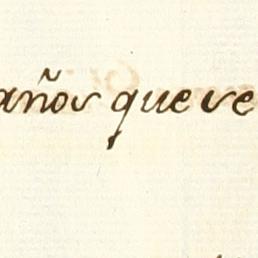 años que se